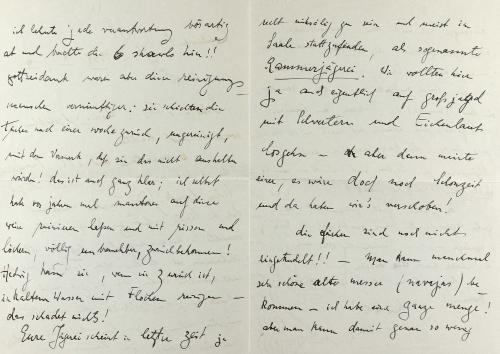 ich lehnte jede verantwortung bösartig
ab und brachte die 6 shawls hin!!
gottseidank waren aber diese reinigungs-
menschen vernünftiger: sie schickten die
nach einer woche zurück, ungereinigt,
mit dem Vermerk, daß sie das nicht aushalten
würden! das ist auch ganz klar; ich selbst
habe vor jahren mal auf diese
weise reinigen lassen und mit rissen und
löchern, völlig unbrauchbar, zurückbekommen!
kann sie, wenn sie zurück ist,
in kaltem Wasser mit Flocken reinigen –
das schadet nichts!
Eure Jägerei scheint in letzter Zeit ja
recht mühselig zu sein und meist im
Saale stattzufinden, als sogenannte
Kammerjägerei. Wir wollten hier
ja auch eigentlich auf großjagd
mit und Eichenlaub
losgehn – aber dann meinte
einer, es wäre doch noch Schonzeit
und da haben wir's verschoben!
die sind noch nicht
eingetrudelt!! – Man kann manchmal
sehr schöne alte messer (navajas) be-
kommen – ich habe eine ganze menge!
aber man kann damit genau so wenig